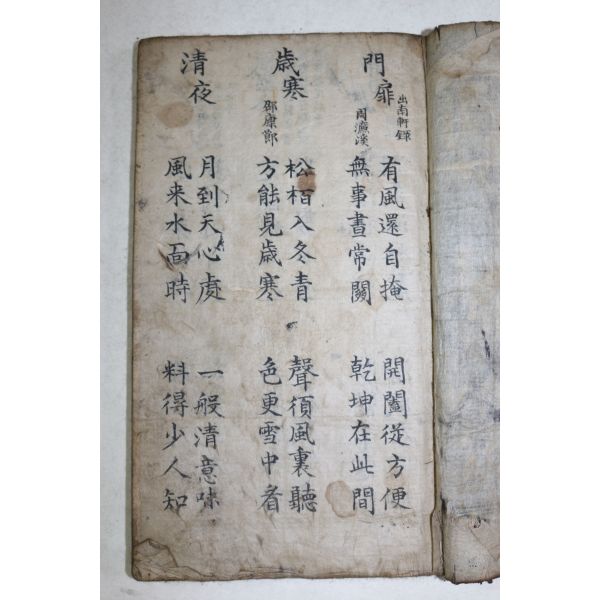 門扉
出南軒錄
周濂溪
有風還自掩
無事晝常關
開闔從方便
乾坤在此間
歳寒
邵康節
松栢入冬青
方能見歳寒
聲須風裏聽
色更雪中看
清夜
月到天心處
風来水面時
一般清意味
料得少人知